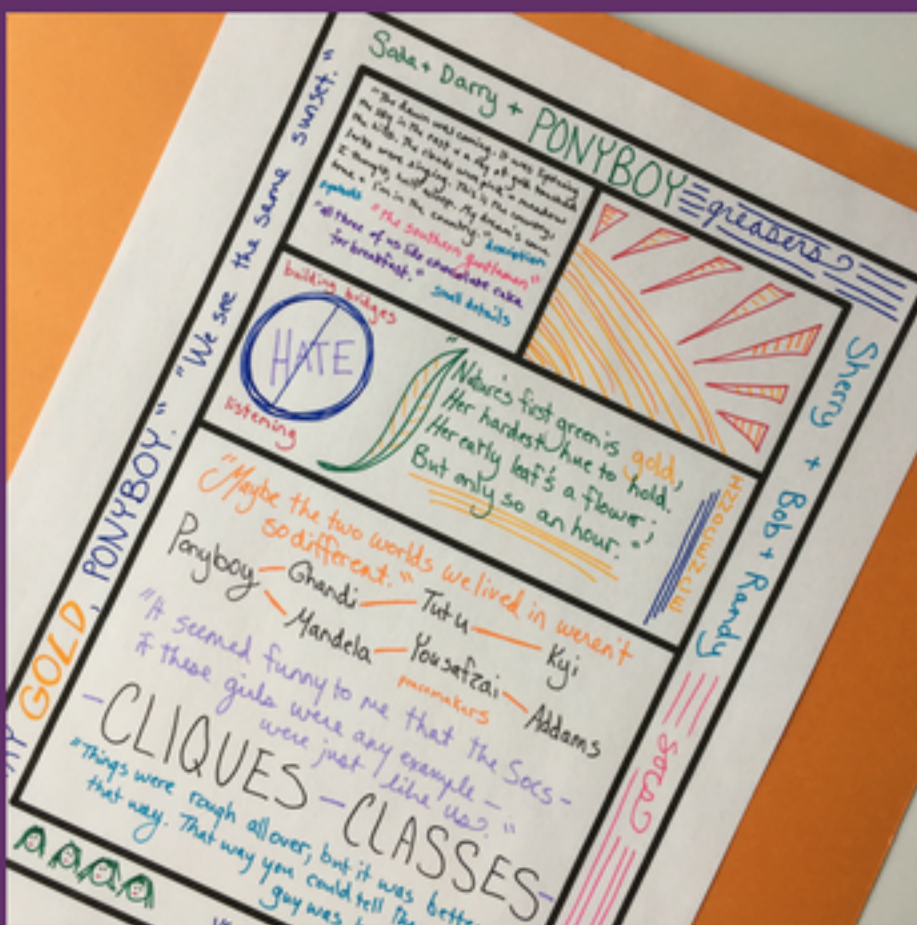 Soda + Darry + PONYBOY
greasers
Sherry + Bob + Randy
Socs
"We see the same sunset."
GOLD, PONYBOY."
"The dawn was coming. It was lightening
the sky in the east + a ray of gold touched
the hills. The clouds were pink + meadow
larks were singing. This is the country,
I thought, half asleep. My dream's come
true + I'm in the country." description
symbols "the southern gentlemen"
"all three of us like chocolate cake
for breakfast."
small details
building bridges
HATE
listening
"Nature's first green is gold,
Her hardest hue to hold.
Her early leaf's a flower;
But only so an hour."
"Maybe the two worlds we lived in weren't
so different."
Ponyboy Ghandi Tutu Kyi
Mandela Yousafzai Addams
peacemakers
"It seemed funny to me that the Socs-
if these girls were any example -
were just like us."
-CLIQUES-CLASSES-
"Things were rough all over, but it was better
that way. That way you could tell the
guy was